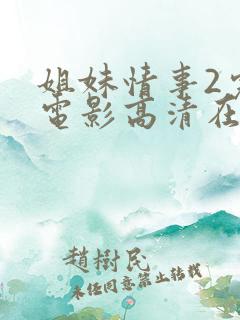 姐妹情事2
電影高清在
趙樹民
未经同意禁止转载